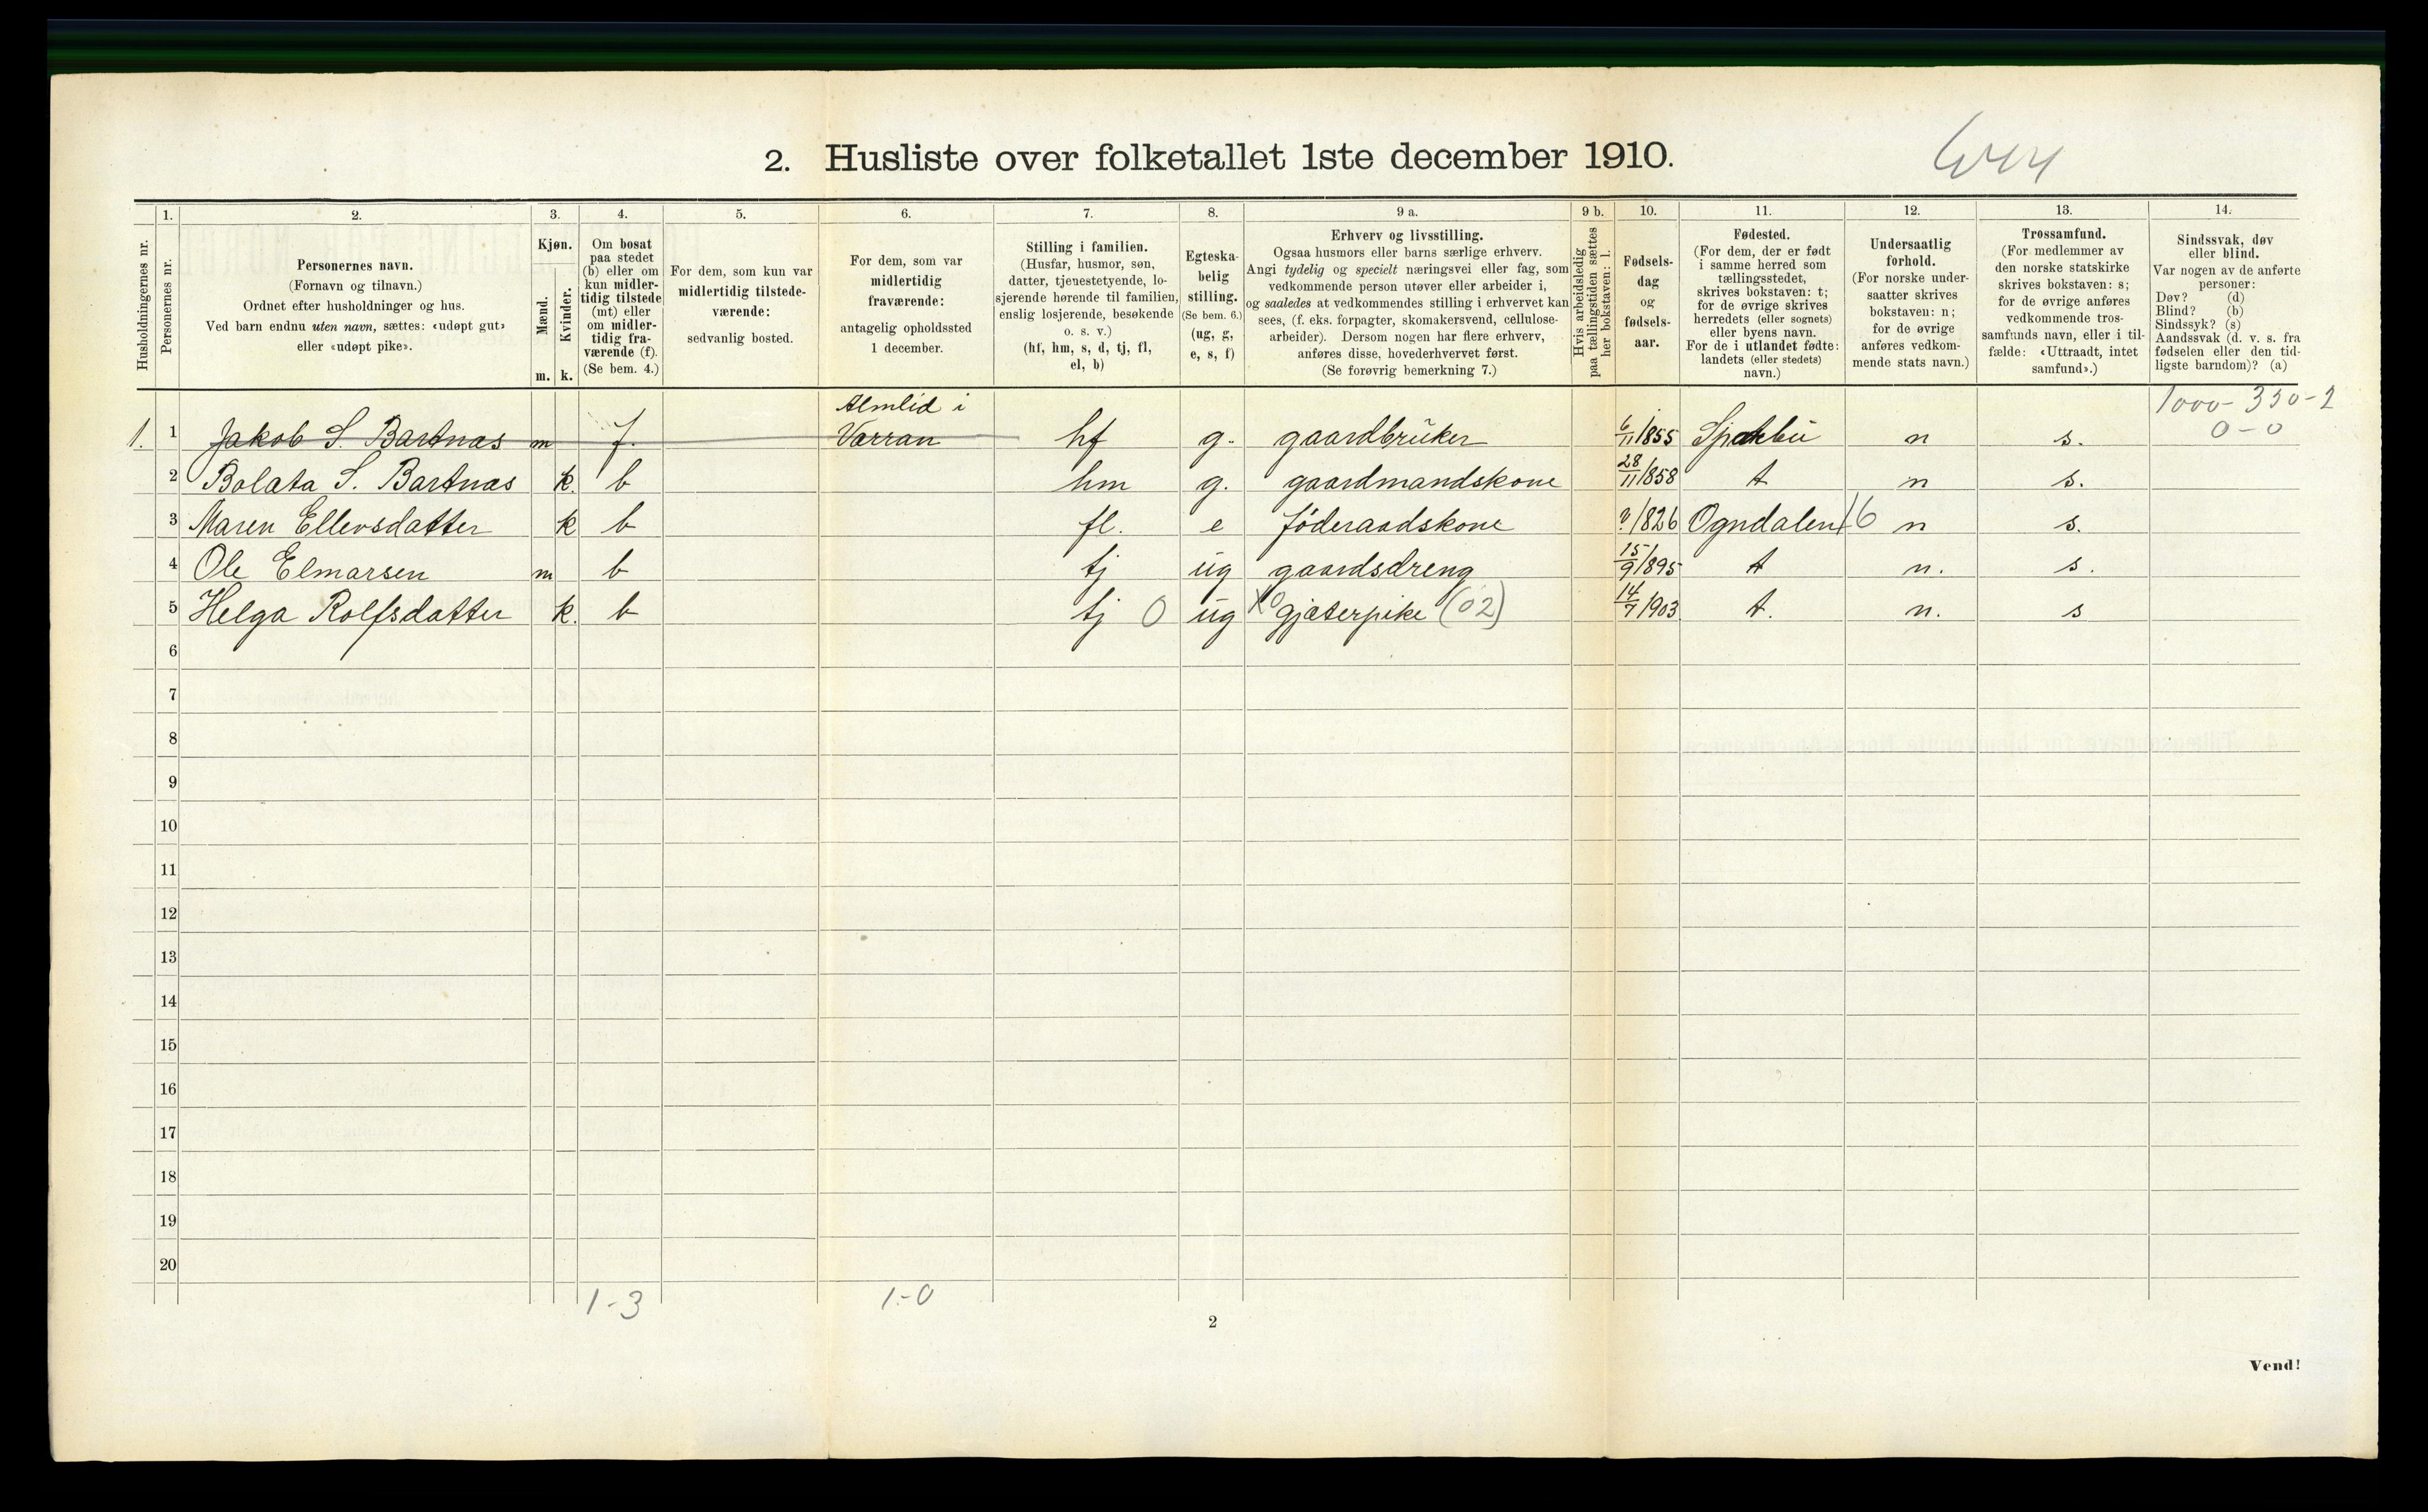 2. Husliste over folketallet 1ste december 1910.
Husholdningernes nr.
1.
Personernes nr.
2.
Personernes navn.
(Fornavn og tilnavn.)
Ordnet efter husholdninger og hus.
Ved barn endnu uten navn, sættes: «udøpt gut»
eller «udøpt pike».
3.
Kjøn.
Mænd.
Kvinder.
m. k.
4.
Om bosat
paa stedet
(b) eller om
kun midler-
tidig tilstede
(mt) eller
om midler-
tidig fra-
værende (f).
(Se bem. 4.)
5.
For dem, som kun var
midlertidig tilstede-
værende:
sedvanlig bosted.
6.
For dem, som var
midlertidig
fraværende:
antagelig opholdssted
1 december.
7.
Stilling i familien.
(Husfar, husmor, søn,
datter, tjenestetyende, lo-
sjerende hørende til familien,
enslig losjerende, besøkende
o. s. v.)
(hf, hm, s, d, tj, fl,
el, b)
8.
Egteska-
belig
stilling.
(Se bem. 6.)
(ug, g,
e, s, f)
9 a.
Erhverv og livsstilling.
Ogsaa husmors eller barns særlige erhverv.
Angi tydelig og specielt næringsvei eller fag, som
vedkommende person utøver eller arbeider i,
og saaledes at vedkommendes stilling i erhvervet kan
sees, (f. eks. forpagter, skomakersvend, cellulose-
arbeider). Dersom nogen har flere erhverv,
anføres disse, hovederhvervet først.
(Se forøvrig bemerkning 7.)
9 b.
Hvis arbeidsledig
paa tællingstiden sættes
her bokstaven: l.
10.
Fødsels-
dag
og
fødsels-
aar.
11.
Fødested.
(For dem, der er født
i samme herred som
tællingsstedet,
skrives bokstaven: t;
for de øvrige skrives
herredets (eller sognets)
eller byens navn.
For de i utlandet fødte:
landets (eller stedets)
navn.)
12.
Undersaatlig
forhold.
(For norske under-
saatter skrives
bokstaven: n;
for de øvrige
anføres vedkom-
mende stats navn.)
13.
Trossamfund.
(For medlemmer av
den norske statskirke
skrives bokstaven: s;
for de øvrige anføres
vedkommende tros-
samfunds navn, eller i til-
fælde: «Uttraadt, intet
samfund».)
14.
Sindssvak, døv
eller blind.
Var nogen av de anførte
personer:
Døv? (d)
Blind? (b)
Sindssyk? (s)
Aandssvak (d. v. s. fra
fødselen eller den tid-
ligste barndom)? (a)
1000-350-2
0-0
1. 1 Jakob S. Bartnas m f. Almlid i Varran hf g. gaardbruker 6/11/855 n s.
2 Bolata S. Bartnas k. b hm g. gaardmandskone 28/11/858 t n s.
3 Maren Ellevsdatter k b fl. e föderaadskone ?/826 Ogndalen 6 n s.
4 Ole Elmarsen m b tj ug gaardsdreng 15/9/895 t n. s.
5 Helga Rolfsdatter k. b tj 0 ug gjæterpike (02) 14/7/903 t. n. s
6
7
8
9
10
11
12
13
14
15
16
17
18
19
20
1-3
1-0
2
Vend!